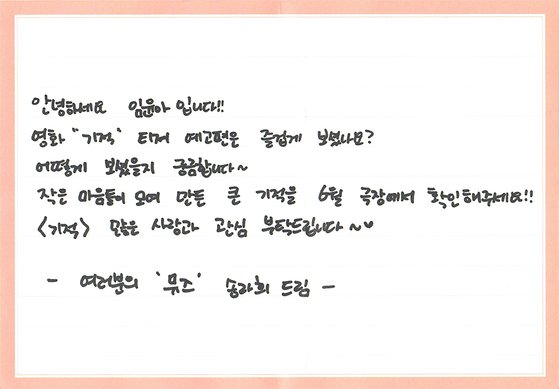 안녕하세요 임윤아 입니다!!
영화 "기적" 티저 예고편은 즐겁게 보셨나요?
어떻게 보셨을지 궁금합니다~
작은 마음들이 모여 만든 큰 기적을 6월 극장에서 확인해주세요!!
<기적> 많은 사랑과 관심 부탁드립니다~♥
- 여러분의 '뮤즈' 송라희 드림 -